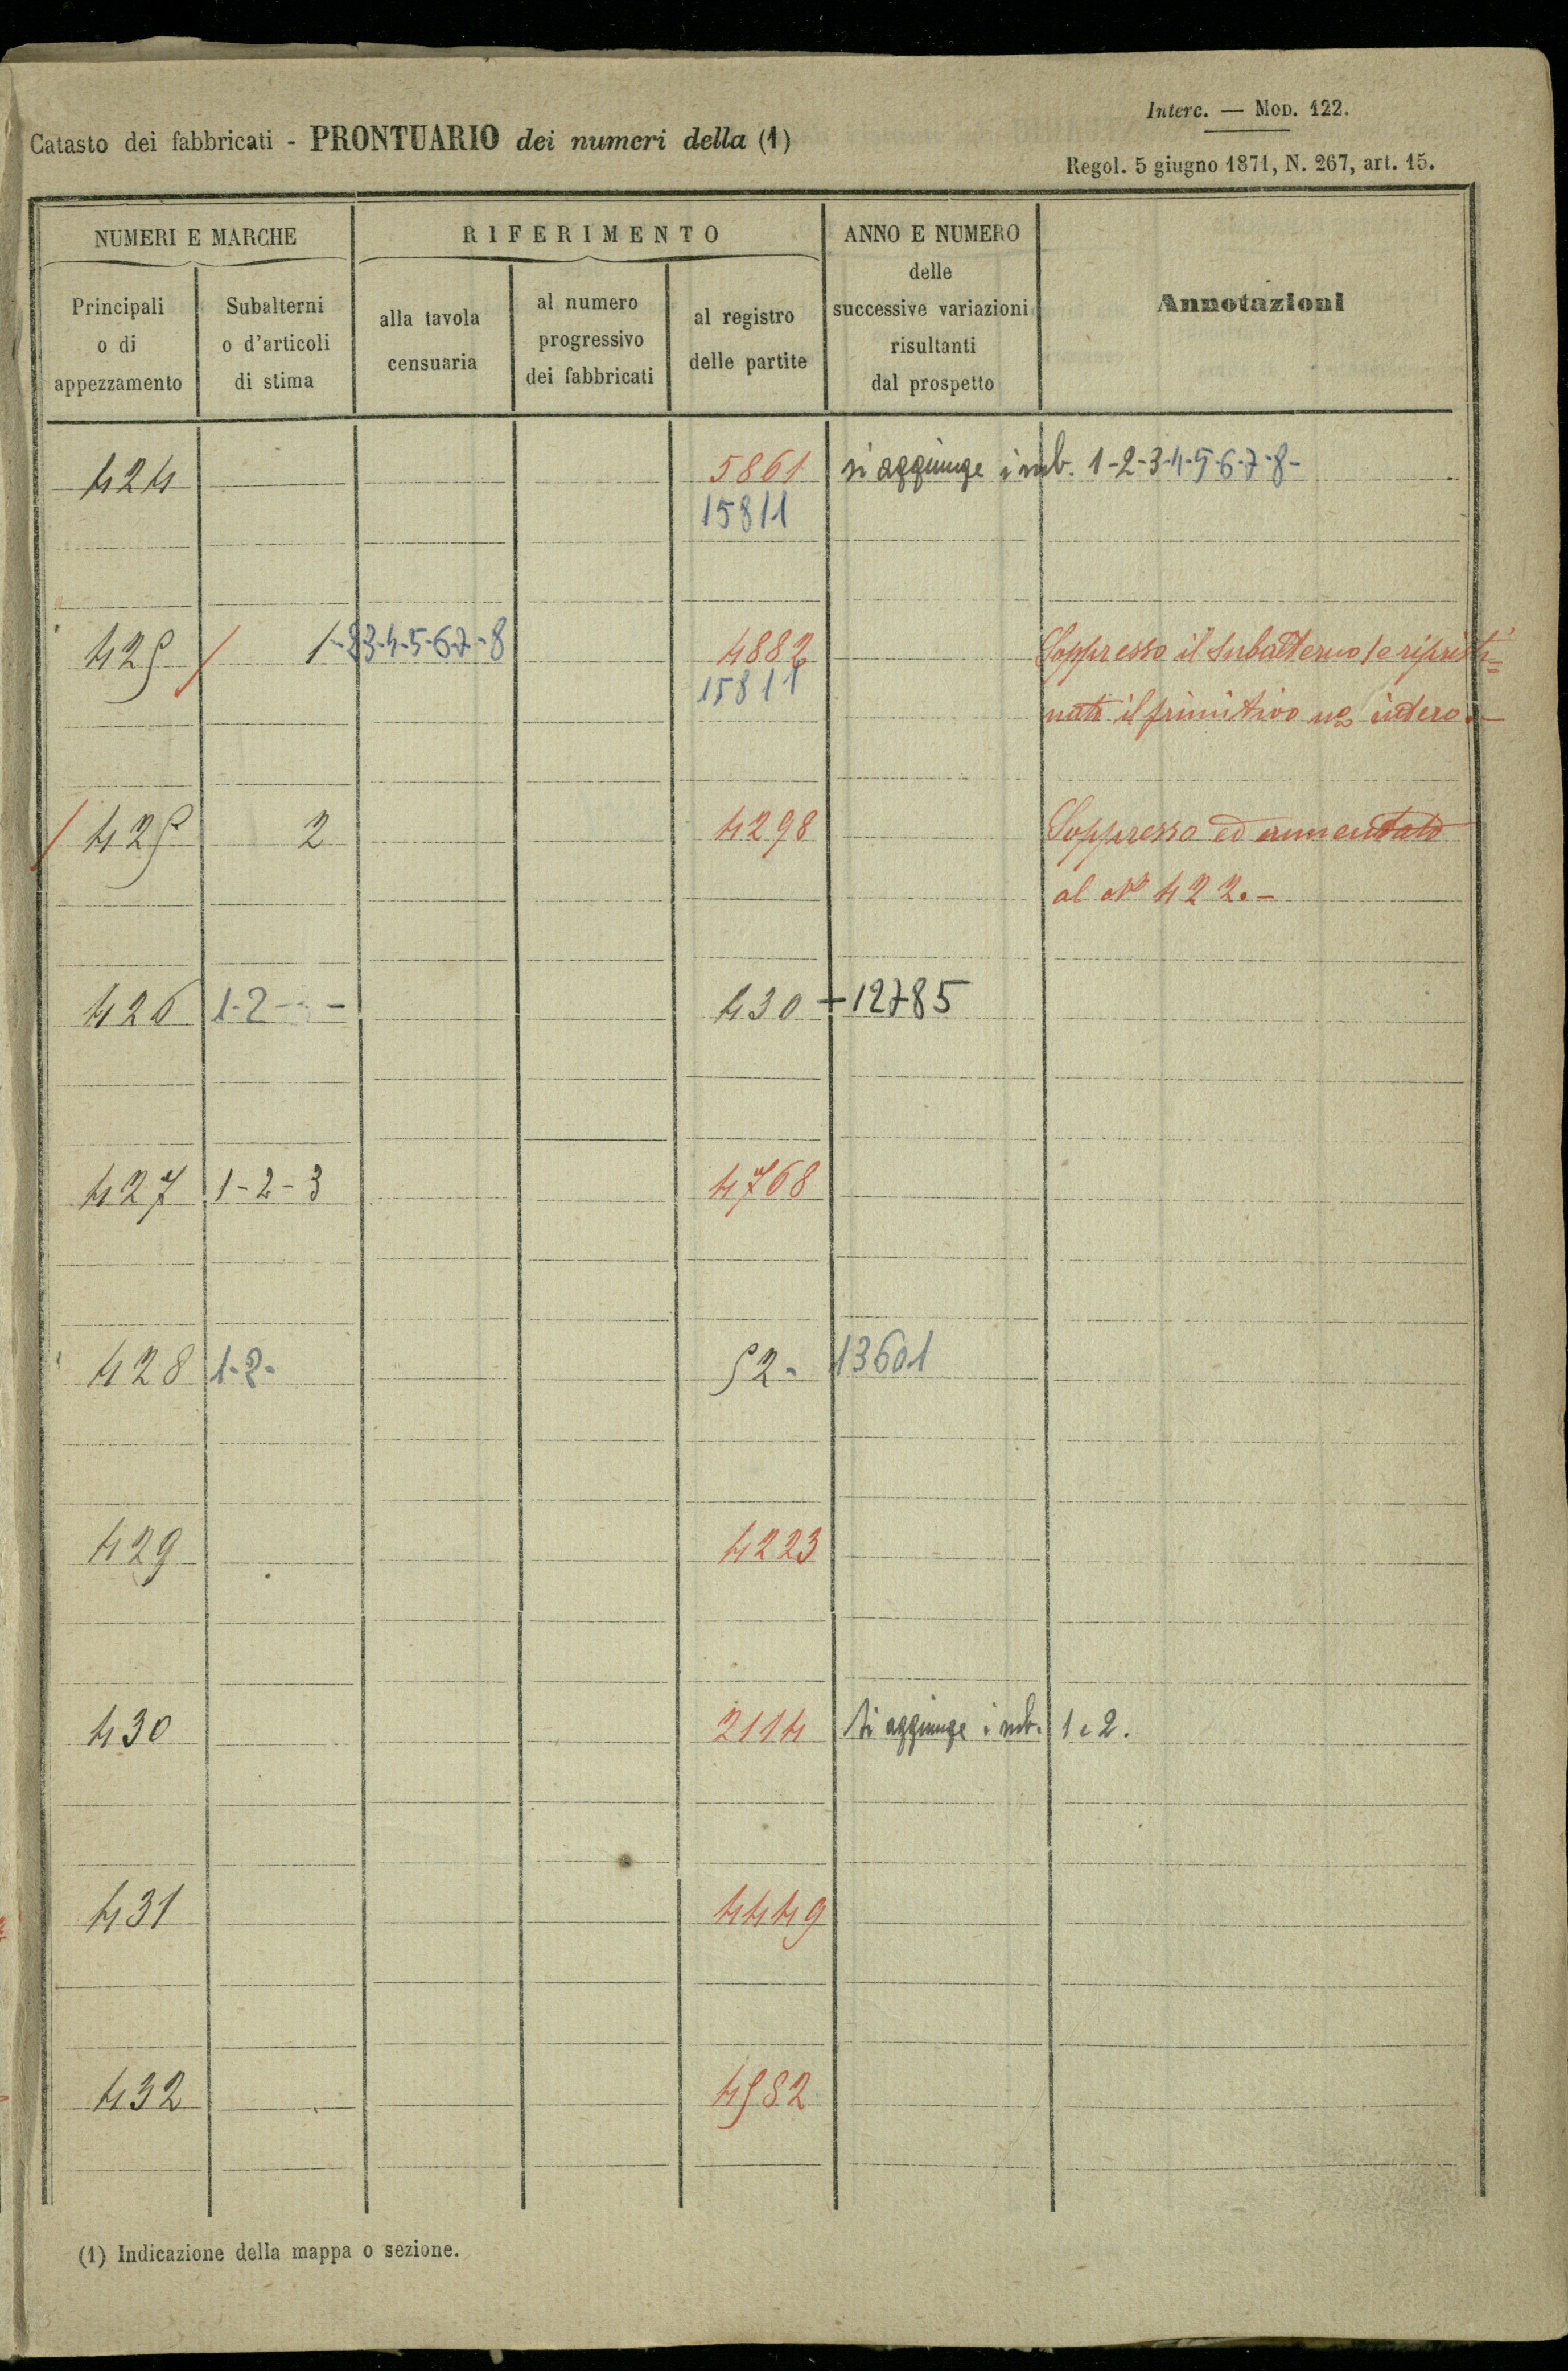 Interc. — Mod. 122.
Catasto dei fabbricati - PRONTUARIO dei numeri della (1)
Regol. 5 giugno 1871, N. 267, art. 15.
NUMERI E MARCHE
RIFERIMENTO
ANNO E NUMERO
delle
successive variazioni
risultanti
dal prospetto
Annotazioni
Principali
o di
appezzamento
Subalterni
o d'articoli
di stima
alla tavola
censuaria
al numero
progressivo
dei fabbricati
al registro
delle partite
424 5861 si aggiunge i sub. 1-2-3-4-5-6-7-8-
15811
425 / 1-2-3-4-5-6-7-8 4882 Soppresso il subalterno 1 e ripristi=
15811 nato il primitivo no intero.—
/ 425 2 4298 Soppresso ed aumentato
al No 422.-
426 1-2- - 430 - 12785
427 1-2-3 4768
428 1-2- 52- 13601
429 4223
430 2114 si aggiunge i sub. 1 e 2.
431 4449
432 4582
(1) Indicazione della mappa o sezione.